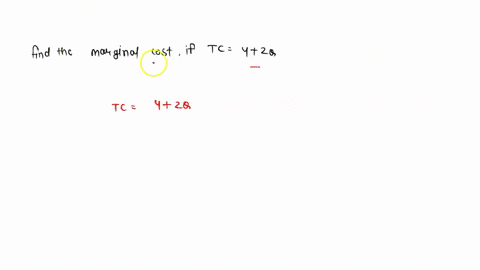 find the marginal cost, if TC = 4+2Q
TC = 4+2Q